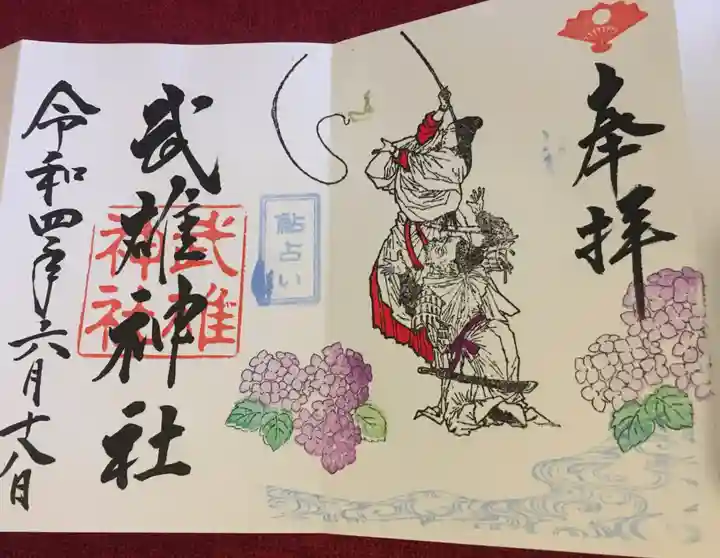 奉拝
鮎占い
武雄神社
武雄
神社
令和四年六月十八日